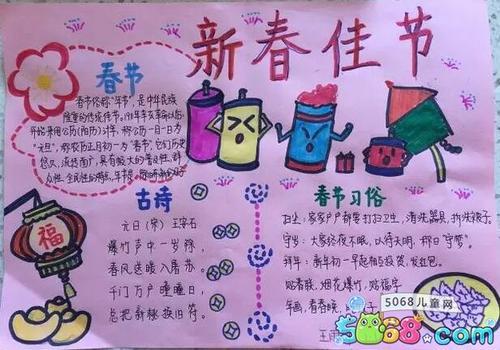 新春佳节
春节
春节俗称"年节",是中华民族
隆重的传统佳节。1911年辛亥革命以后
开始采用公历(阳历)计年,称公历一月一日为
"元旦",称农历正月初一为"春节",它们历史
悠久,流传面广,具有极大的普及性,群
众性,全民性的特点。
古诗
元日(宋)王安石
爆竹声中一岁除,
春风送暖入屠苏。
千门万户曈曈日,
总把新桃换旧符。
福
春节习俗
扫尘:家家户户都要打扫卫生,清洗器具,拆洗被子。
守岁:大家终夜不眠,以待天明,称曰"守岁"。
拜年:新年初一早起相互投资,发红包。
贴春联,烟花爆竹,贴福字
年画,看春晚,
5068儿童网
5068.com